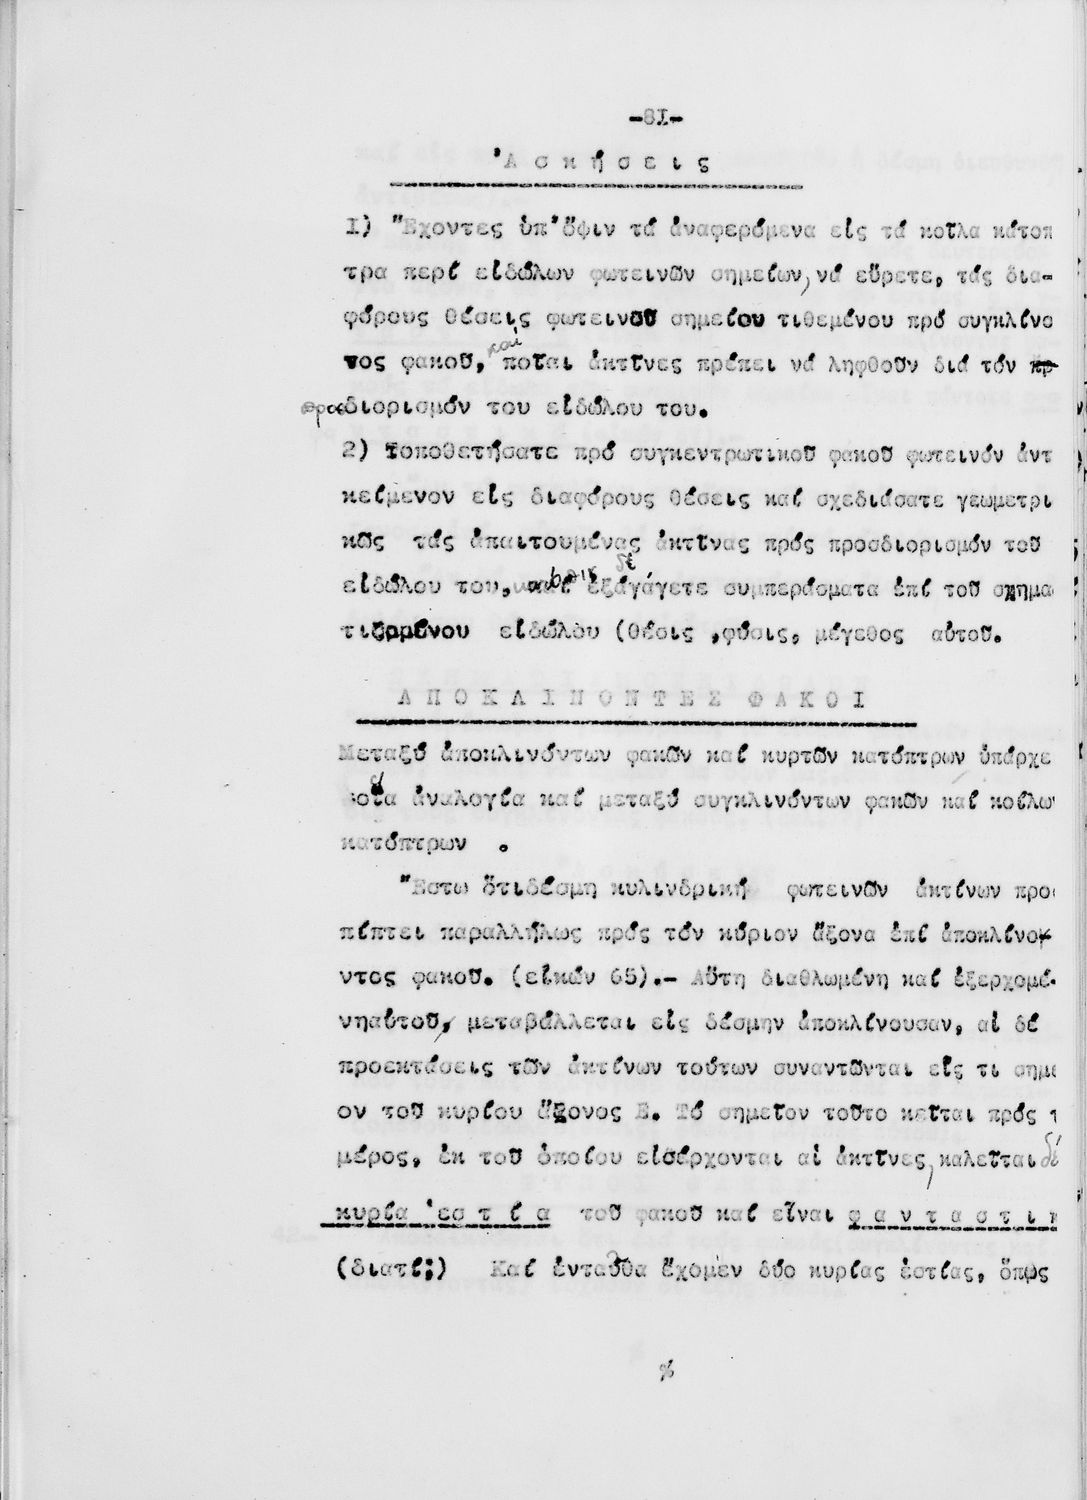 -81-
Ἀσκήσεις
1) Ἔχοντες ὑπ' ὄψιν τά ἀναφερόμενα εἰς τά κοῖλα κάτοπ
τρα περί εἰδώλων φωτεινῶν σημείων, νά εὕρετε, τάς δια-
φόρους θέσεις φωτεινοῦ σημείου τιθεμένου πρό συγκλίνο
ντος φακοῦ, καί ποῖαι ἀκτῖνες πρέπει νά ληφθοῦν διά τόν
προσδιορισμόν του εἰδώλου του.
2) Τοποθετήσατε πρό συγκεντρωτικοῦ φακοῦ φωτεινόν ἀντ
κείμενον εἰς διαφόρους θέσεις καί σχεδιάσατε γεωμετρι
κῶς τάς ἀπαιτουμένας ἀκτῖνας πρός προσδιορισμόν τοῦ
εἰδώλου του, ἐξαγάγετε συμπεράσματα ἐπί τοῦ σχημα
τιζομένου εἰδώλου (θέσις, φύσις, μέγεθος αὐτοῦ.
ΑΠΟΚΛΙΝΟΝΤΕΣ ΦΑΚΟΙ
Μεταξύ ἀποκλινόντων φακῶν καί κυρτῶν κατόπτρων ὑπάρχε
οἵα ἀναλογία καί μεταξύ συγκλινόντων φακῶν καί κοίλω
κατόπτρων .
Ἔστω ὅτιδέσμη κυλινδρική φωτεινῶν ἀκτίνων προσ
πίπτει παραλλήλως πρός τόν κύριον ἄξονα ἐπί ἀποκλίνο
ντος φακοῦ. (εἰκών 65).- Αὕτη διαθλωμένη καί ἐξερχομέ-
νηαὐτοῦ, μεταβάλλεται εἰς δέσμην ἀποκλίνουσαν, αἱ δέ
προεκτάσεις τῶν ἀκτίνων τούτων συναντῶνται εἴς τι σημε
ον τοῦ κυρίου ἄξονος Ε. Τό σημεῖον τοῦτο κεῖται πρός τ
μέρος, ἐκ τοῦ ὁποίου εἰσέρχονται αἱ ἀκτῖνες, καλεῖται δέ
κυρία ἑστία τοῦ φακοῦ καί εἶναι φανταστικ
(διατί;) Καί ἐνταῦθα ἔχομεν δύο κυρίας ἑστίας, ὅπως
%